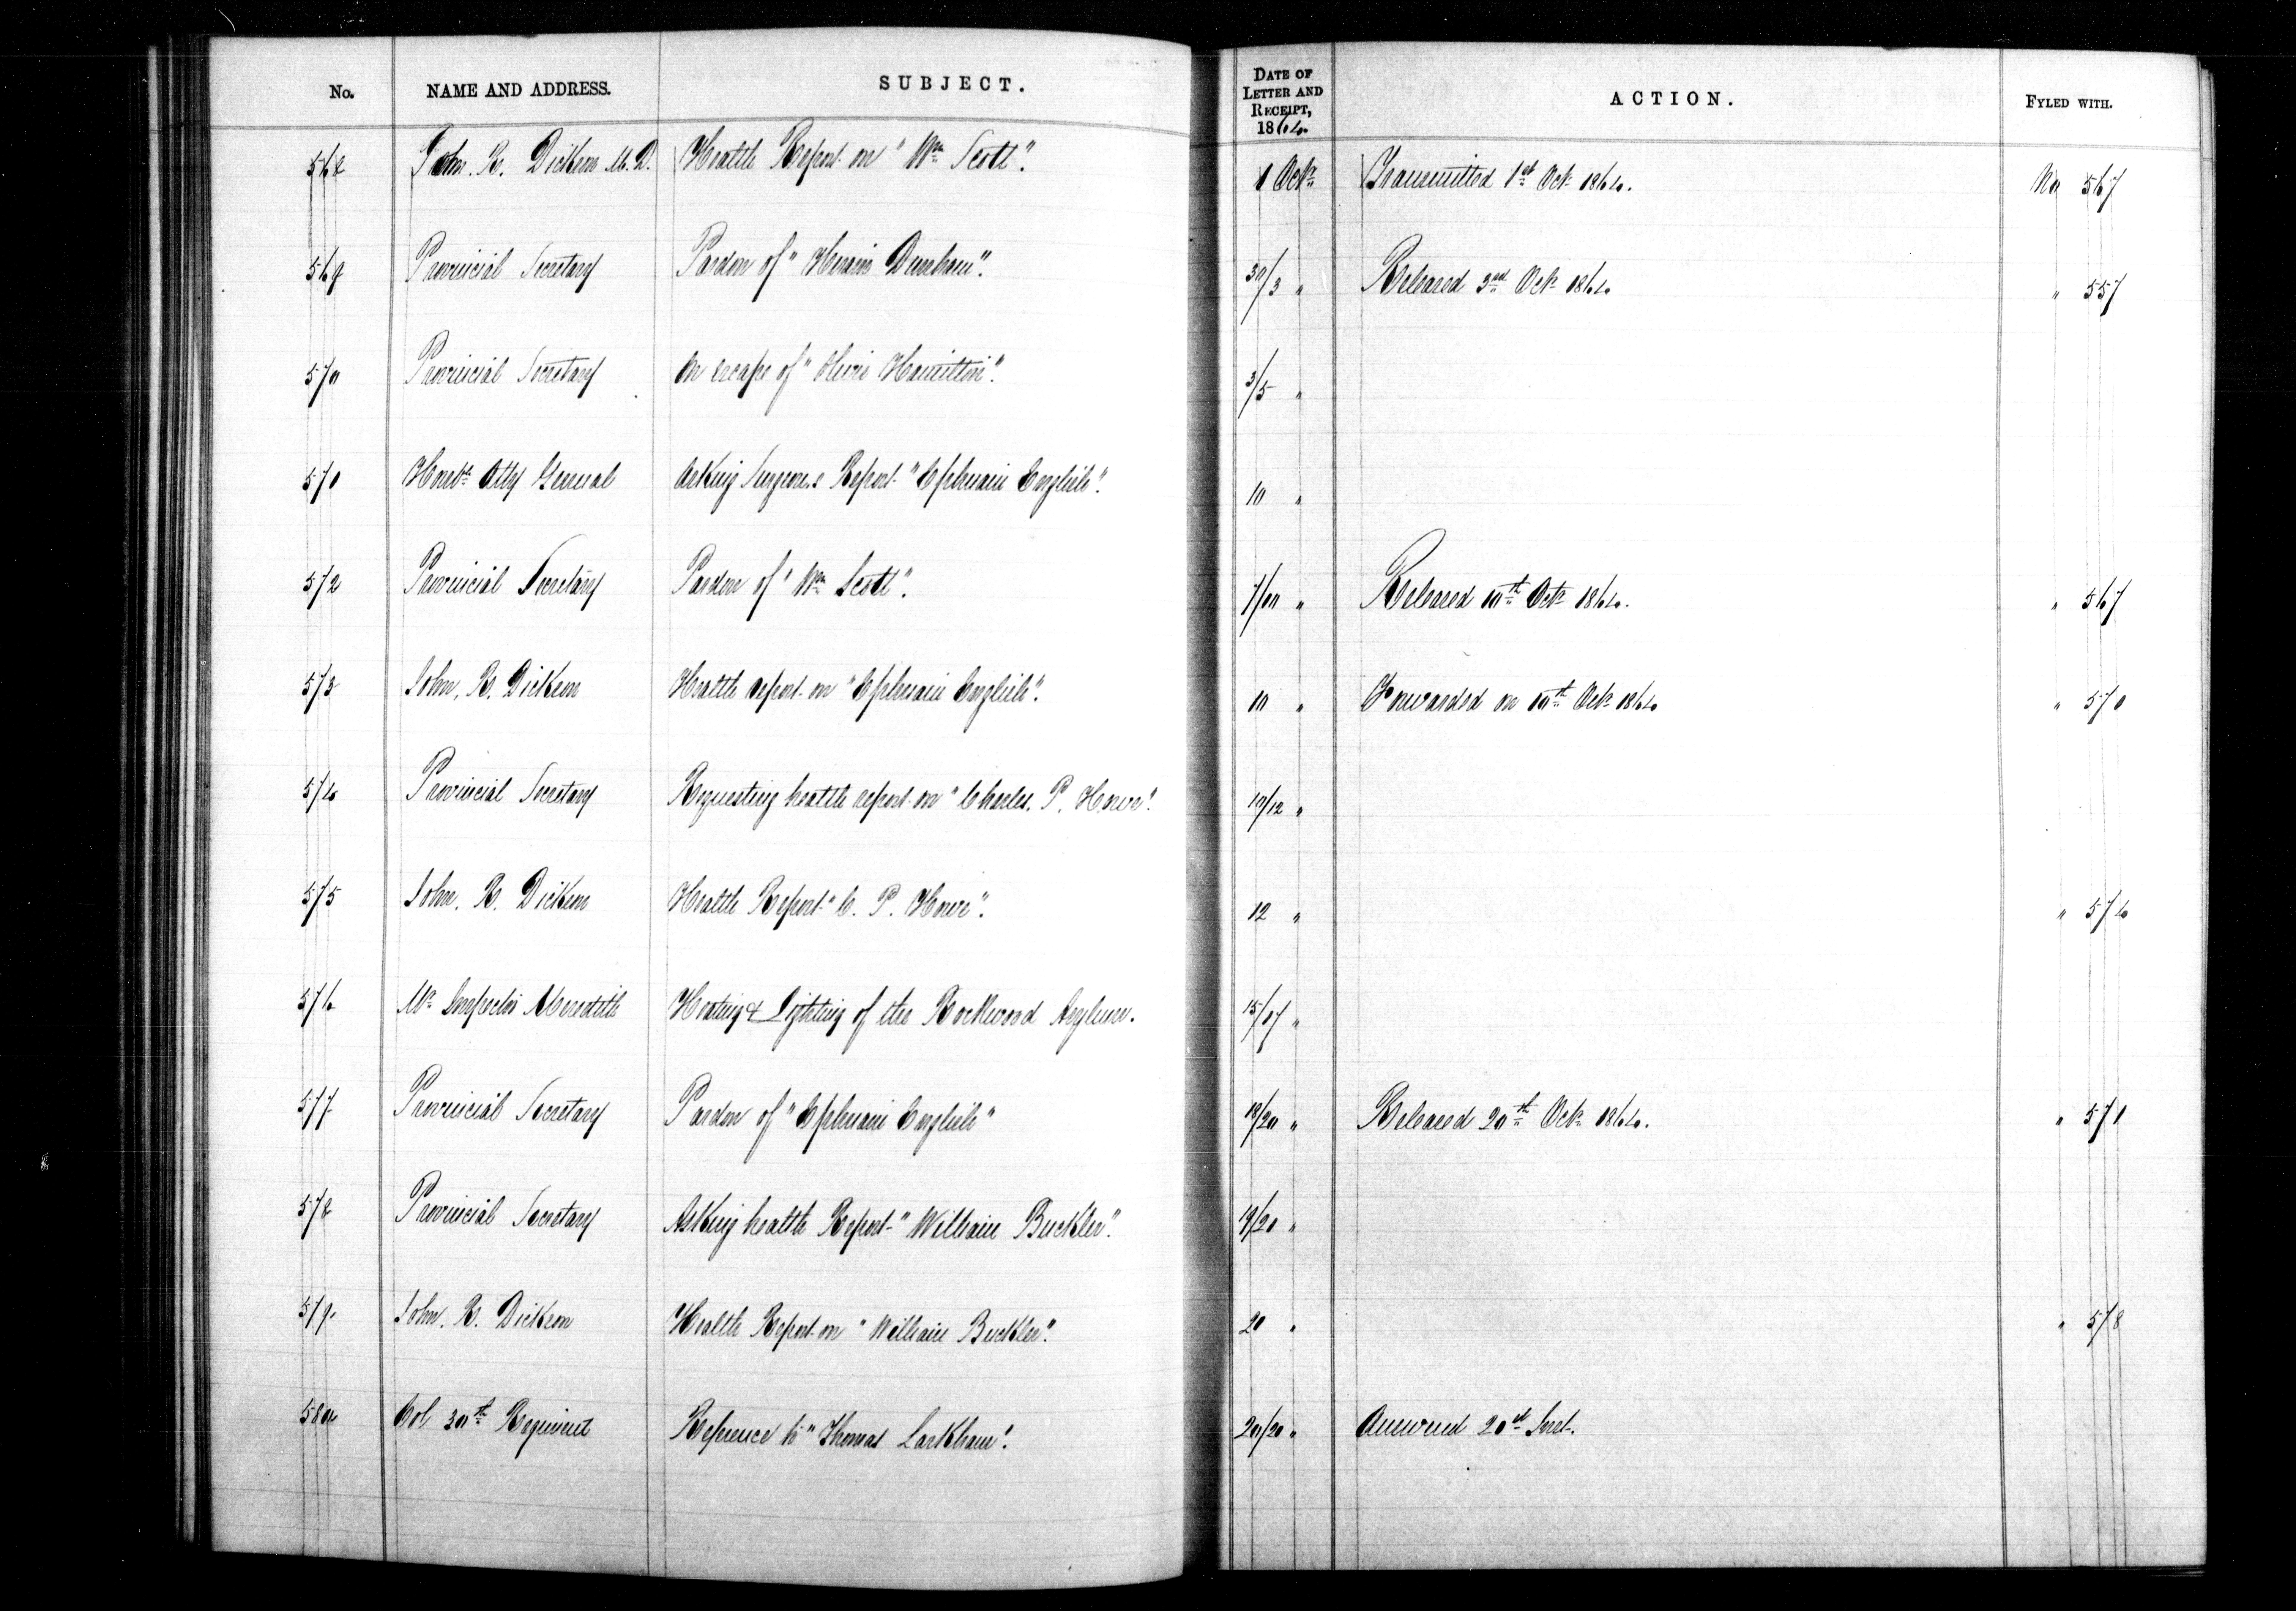 No. NAME AND ADDRESS. SUBJECT. DATE OF LETTER AND RECEIPT, 1864. ACTION. FYLED WITH.
568 John. R. Dickson M.D. Health Report on "Wm Scott". 1 Octr Transmitted 1st Octr 1864. No 567
569 Provincial Secretary Pardon of "Hiram Dunham". 30/3 " Released 3rd Octr 1864. " 557
570 Provincial Secretary On escape of " Hamilton". 3/5 "
571 Honble Atty General Asking Surgeons Report "Ephraim English". 10 "
572 Provincial Secretary Pardon of "Wm Scott". 7/10 " Released 10th Octr 1864. " 567
573 John. R. Dickson Health report on "Ephraim English". 10 " Forwarded on 10th Octr 1864. " 571
574 Provincial Secretary Requesting health report on "Charles. P. Howe". 10/12 "
575 John. R. Dickson Health Report "C. P. Howe". 12 " " 574
576 Mr Inspector Meredith Heating & Lighting of the Rockwood Asylum. 15/17 "
577. Provincial Secretary Pardon of "Ephraim English" 18/20 " Released 20th Octr 1864. " 571
578 Provincial Secretary Asking health Report "William Buckler". 19/20 "
579. John. R. Dickson Health Report on "William Buckler". 20 " " 578
580 Col 30th Regiment Reference to "Thomas Larkham". 20/20 " Answered Inst.